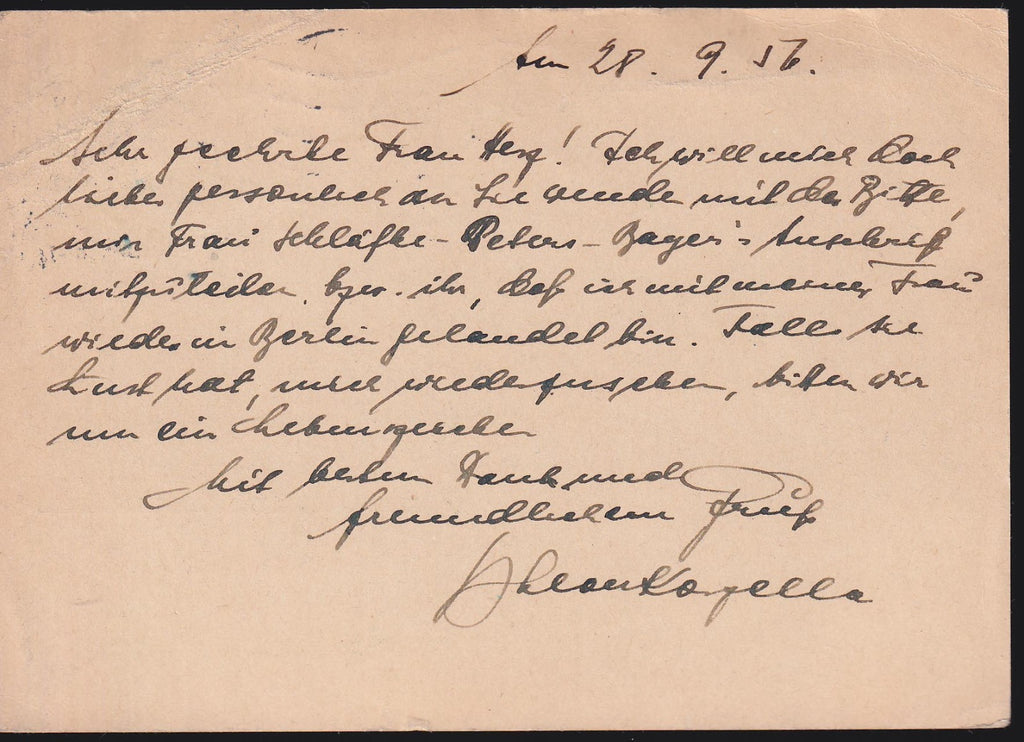 Am 28. 9. 56.
Sehr geehrte Frau Herz! Ich will mich doch
lieber persönlich an Sie wende mit der Bitte,
mir Frau Schläfke-Peters-Bager's Anschrift
mitzuteilen, bzw. ihr, daß ich mit meiner Frau
wieder in Berlin gelandet bin. Falls sie
Lust hat, mich wiederzusehen, bitten wir
um ein Lebenszeichen
Mit bestem Dank und
freundlichem Gruß